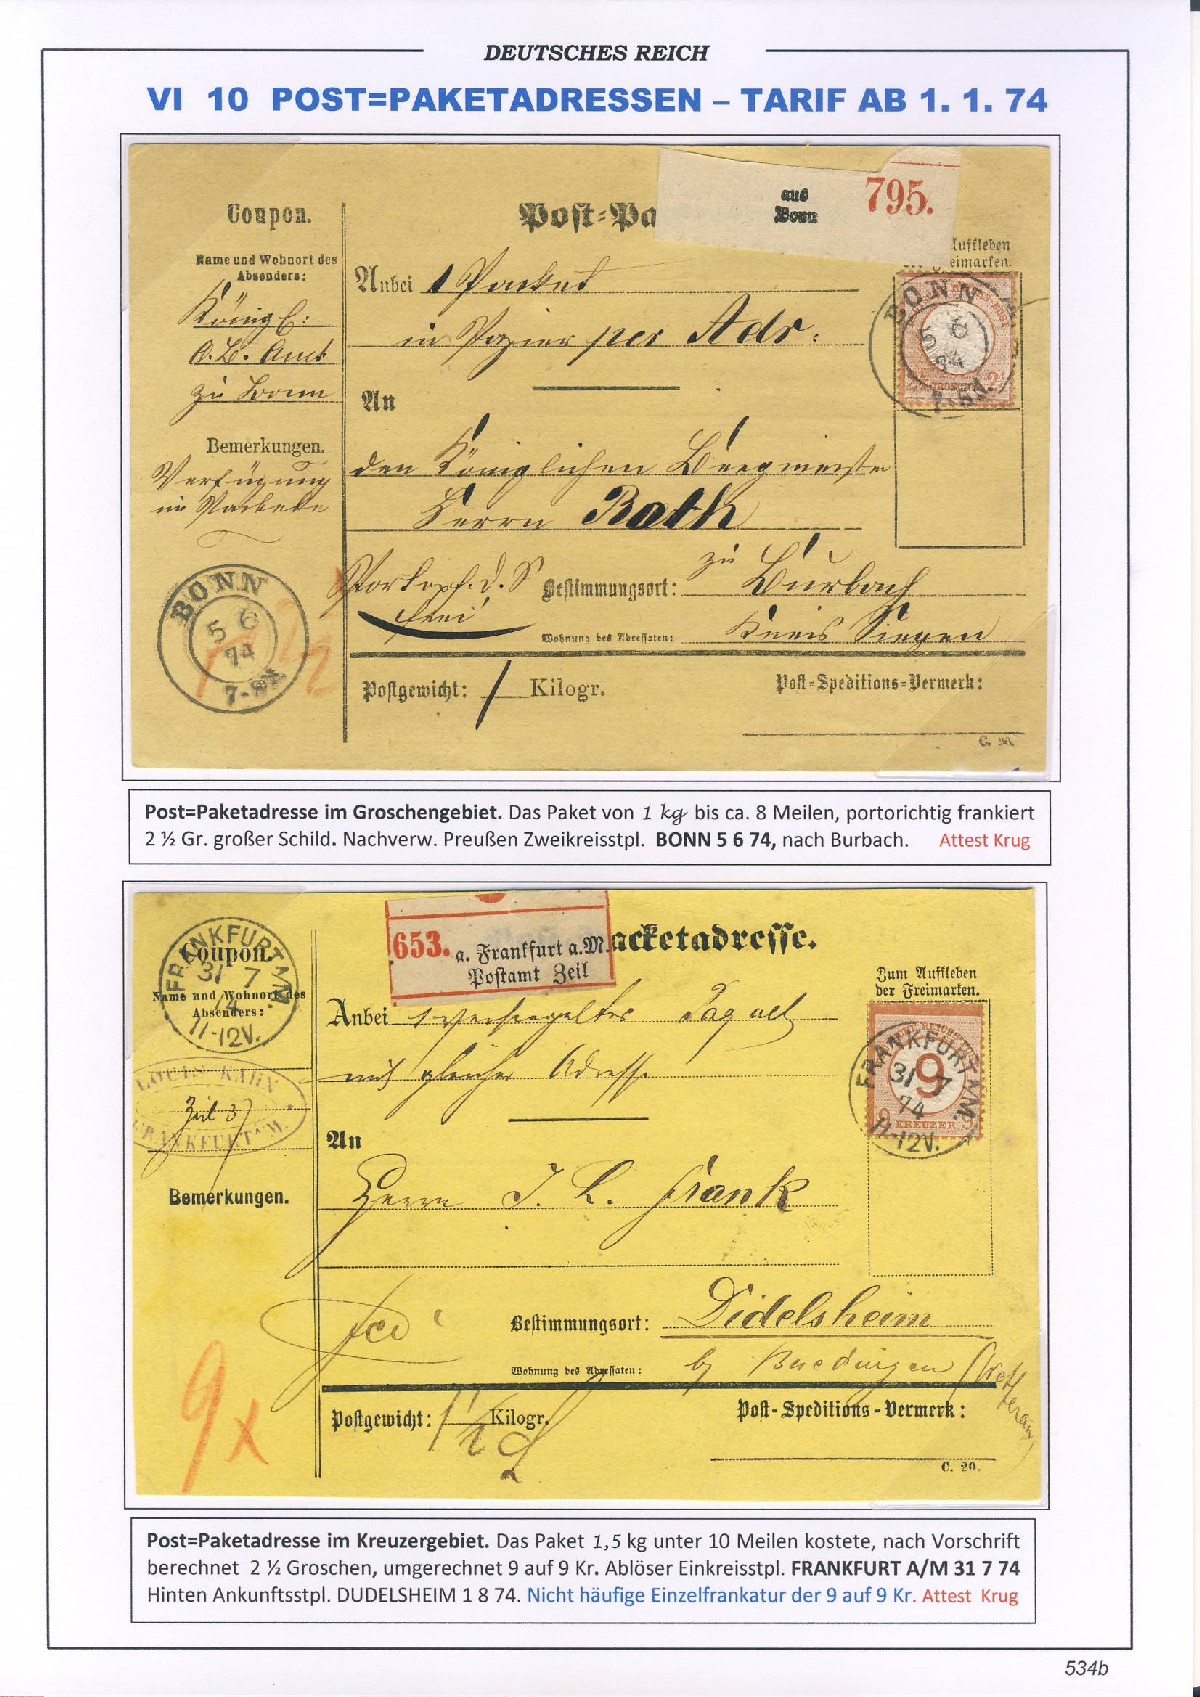 DEUTSCHES REICH
VI 10 POST=PAKETADRESSEN – TARIF AB 1. 1. 74
Coupon.
Name und Wohnort des
Absenders:
Königl:
O. B. Amt
zu Bonn
Bemerkungen.
Verfügung
im Packete
BONN
5 6
74
7-8N
Post-Pa
aus
Bonn
795.
Aufkleben
eimarken.
BONN
5 6
74
7-8N.
Anbei 1 Packet
in Papier per Adr:
An
den Königlichen Bergmeister
Herrn Bath
frei
Bestimmungsort: zu Burbach
Wohnung des Adressaten: Kreis Siegen
Postgewicht: 1 Kilogr.
Post-Speditions-Vermerk:
C. M.
Post=Paketadresse im Groschengebiet. Das Paket von 1 kg bis ca. 8 Meilen, portorichtig frankiert
2 ½ Gr. großer Schild. Nachverw. Preußen Zweikreisstpl. BONN 5 6 74, nach Burbach. Attest Krug
FRANKFURT A/M.
31 7
74
11-12V.
Coupon.
Name und Wohnort des
Absenders:
LOUIS KAHN
Zeil 37
FRANKFURT a/M.
Bemerkungen.
9x
653. a. Frankfurt a.M.
Postamt Zeil
acketadresse.
Zum Aufkleben
der Freimarken.
9
9 KREUZER 9
FRANKFURT A/M.
31 7
74
11-12V.
Anbei 1 versiegeltes Paquet
mit gleicher Adresse
An
Herrn J. L. Frank
Bestimmungsort: Didelsheim
Wohnung des Adressaten: by Buedingen
Postgewicht: 1 1/2 Kilogr.
Post-Speditions-Vermerk:
C. 20.
Post=Paketadresse im Kreuzergebiet. Das Paket 1,5 kg unter 10 Meilen kostete, nach Vorschrift
berechnet 2 ½ Groschen, umgerechnet 9 auf 9 Kr. Ablöser Einkreisstpl. FRANKFURT A/M 31 7 74
Hinten Ankunftsstpl. DUDELSHEIM 1 8 74. Nicht häufige Einzelfrankatur der 9 auf 9 Kr. Attest Krug
534b